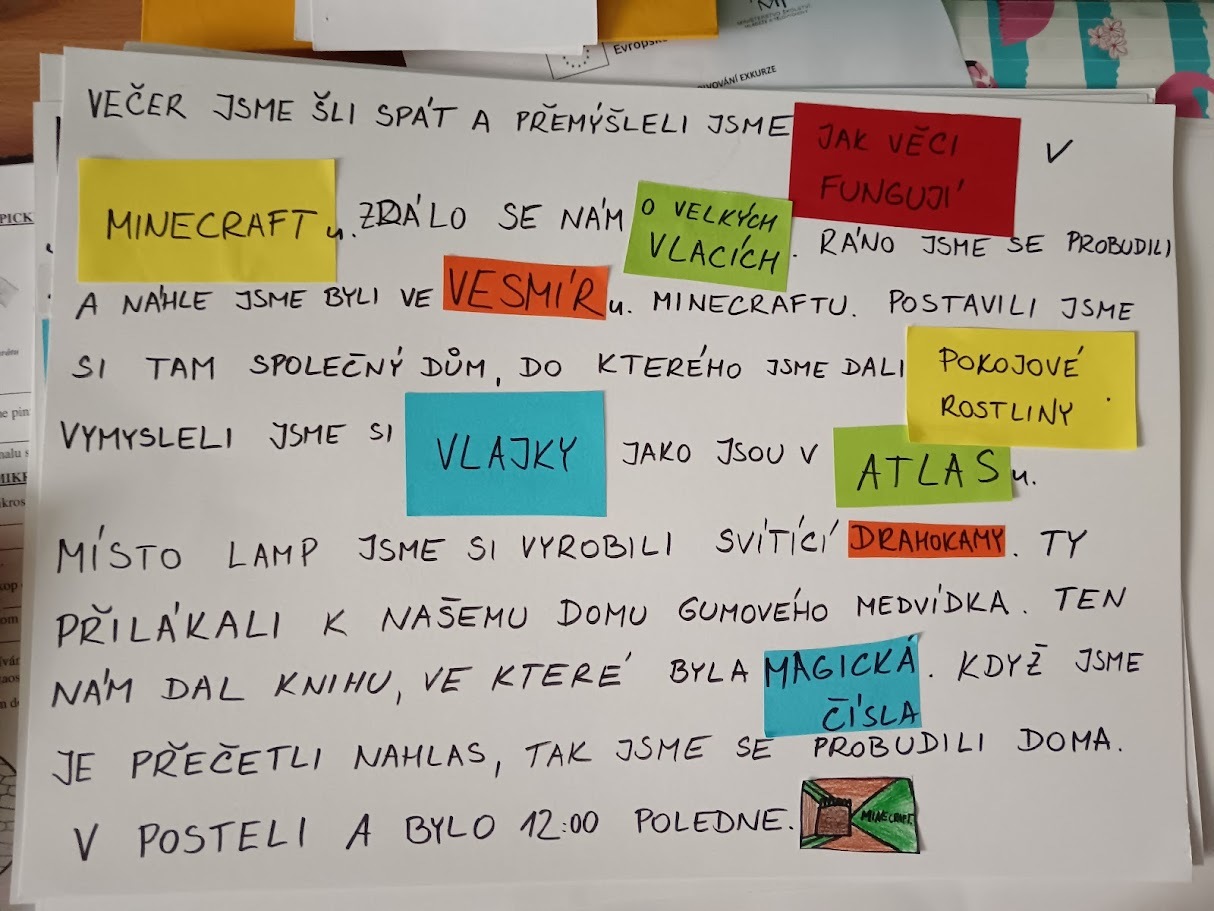 Evropsk
MINISTERSTVO ŠKOLSTVÍ
VOVÁNÍ EXKURZE
VEČER JSME ŠLI SPÁT A PŘEMÝŠLELI JSME JAK VĚCI FUNGUJÍ V
MINECRAFTu. ZDÁLO SE NÁM O VELKÝCH VLACÍCH. RÁNO JSME SE PROBUDILI
A NÁHLE JSME BYLI VE VESMÍRu. MINECRAFTU. POSTAVILI JSME
SI TAM SPOLEČNÝ DŮM, DO KTERÉHO JSME DALI POKOJOVÉ ROSTLINY.
VYMYSLELI JSME SI VLAJKY JAKO JSOU V ATLASu.
MÍSTO LAMP JSME SI VYROBILI SVÍTÍCÍ DRAHOKAMY. TY
PŘILÁKALI K NAŠEMU DOMU GUMOVÉHO MEDVÍDKA. TEN
NÁM DAL KNIHU, VE KTERÉ BYLA MAGICKÁ ČÍSLA. KDYŽ JSME
JE PŘEČETLI NAHLAS, TAK JSME SE PROBUDILI DOMA.
V POSTELI A BYLO 12:00 POLEDNE.
MINECRAFT
PICK